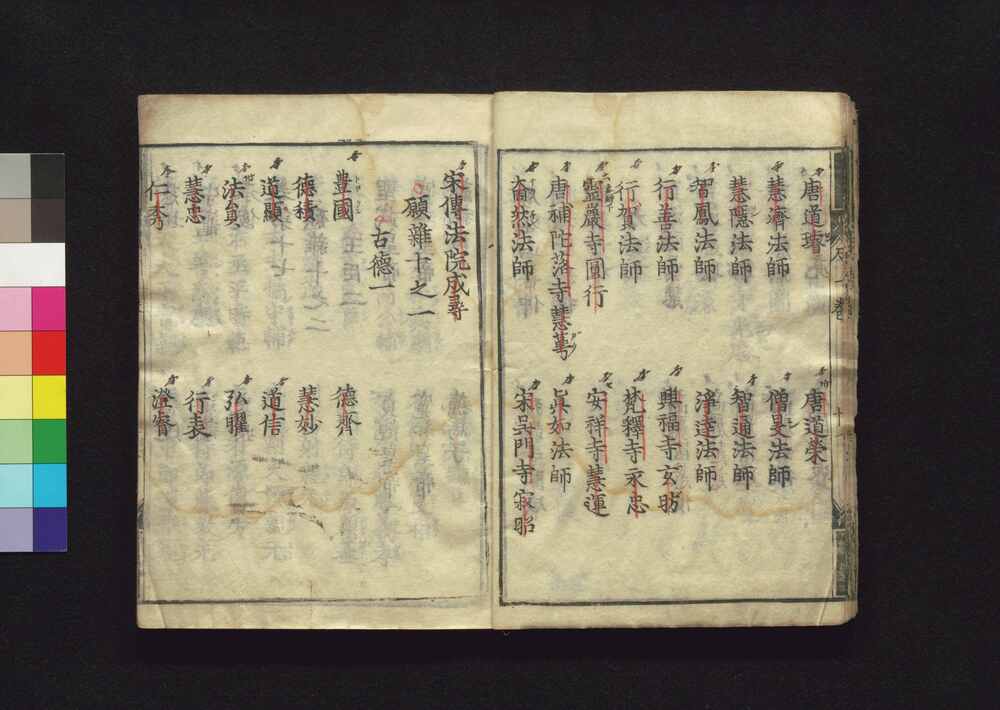 唐道璿　唐道榮
慧濟法師　僧旻法師
慧隱法師　智通法師
智鳳法師　淨達法師
行善法師　興福寺玄昉
行賀法師　梵釋寺永忠
靈巖寺圓行　安祥寺慧運
唐補陀落寺慧萼　眞如法師
奝然法師　宋吳門寺寂昭
宋傳法院成尋
願雜十之一
古德一
豊國　德齊
德積　慧妙
道顯　道信
法員　弘曜
慧忠　行表
仁秀　澄睿